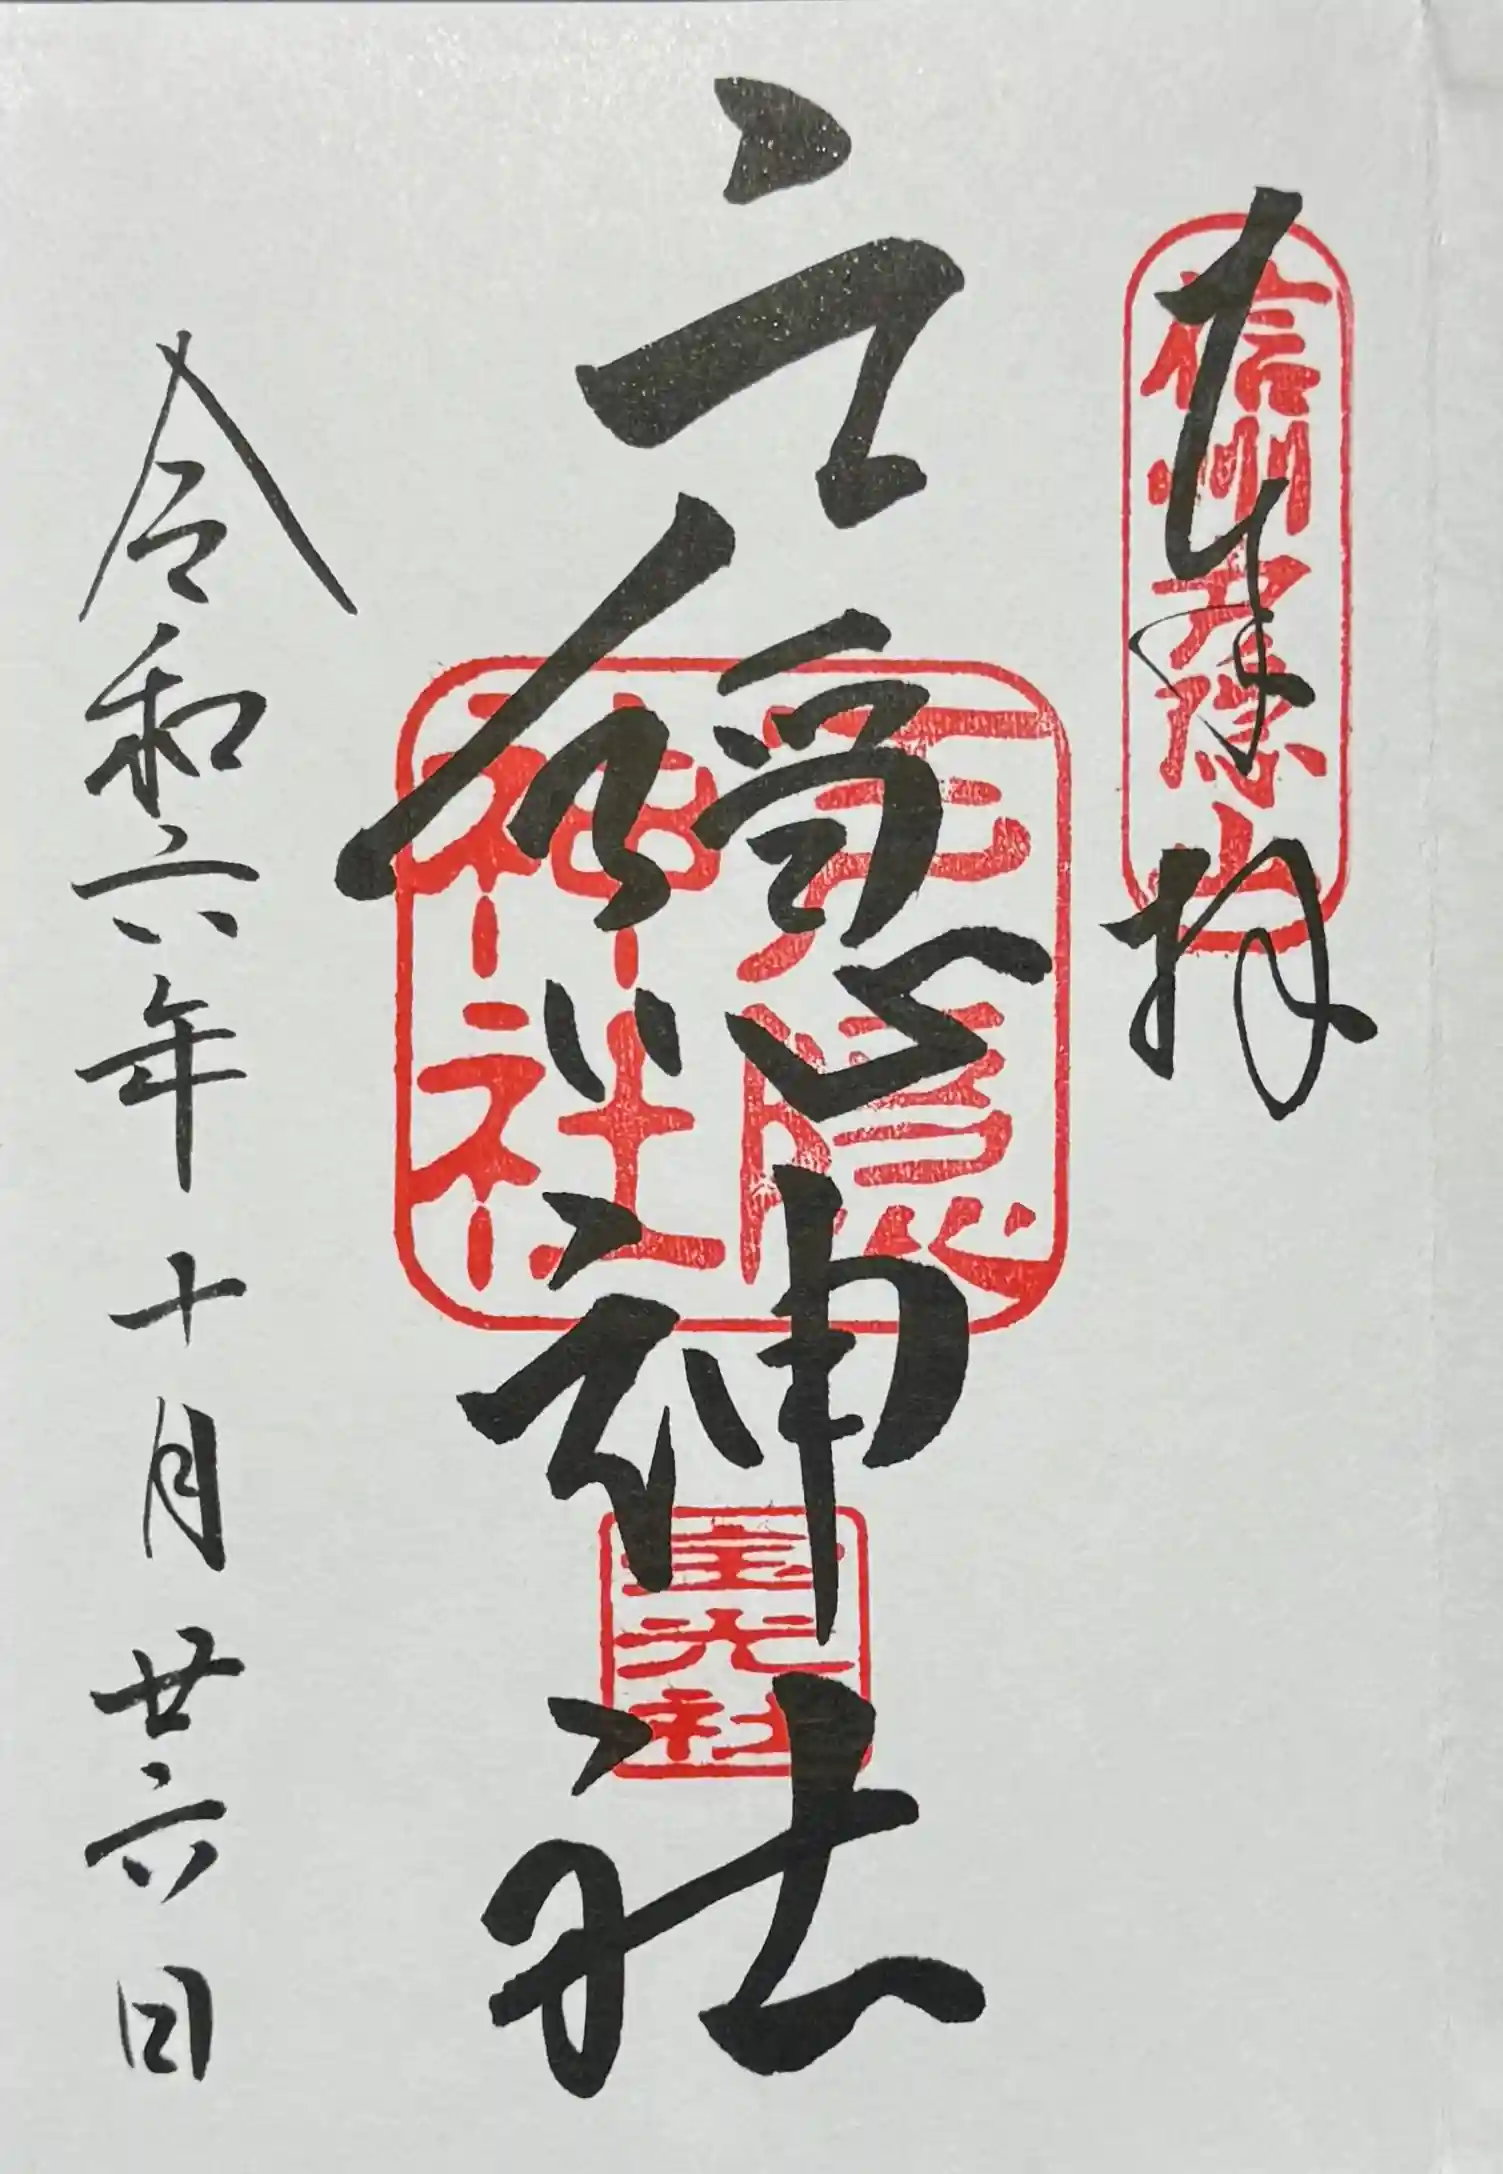 奉拝
信州戸隠山
戸隠神社
戸隠
神社
宝光社
令和六年十月廿六日